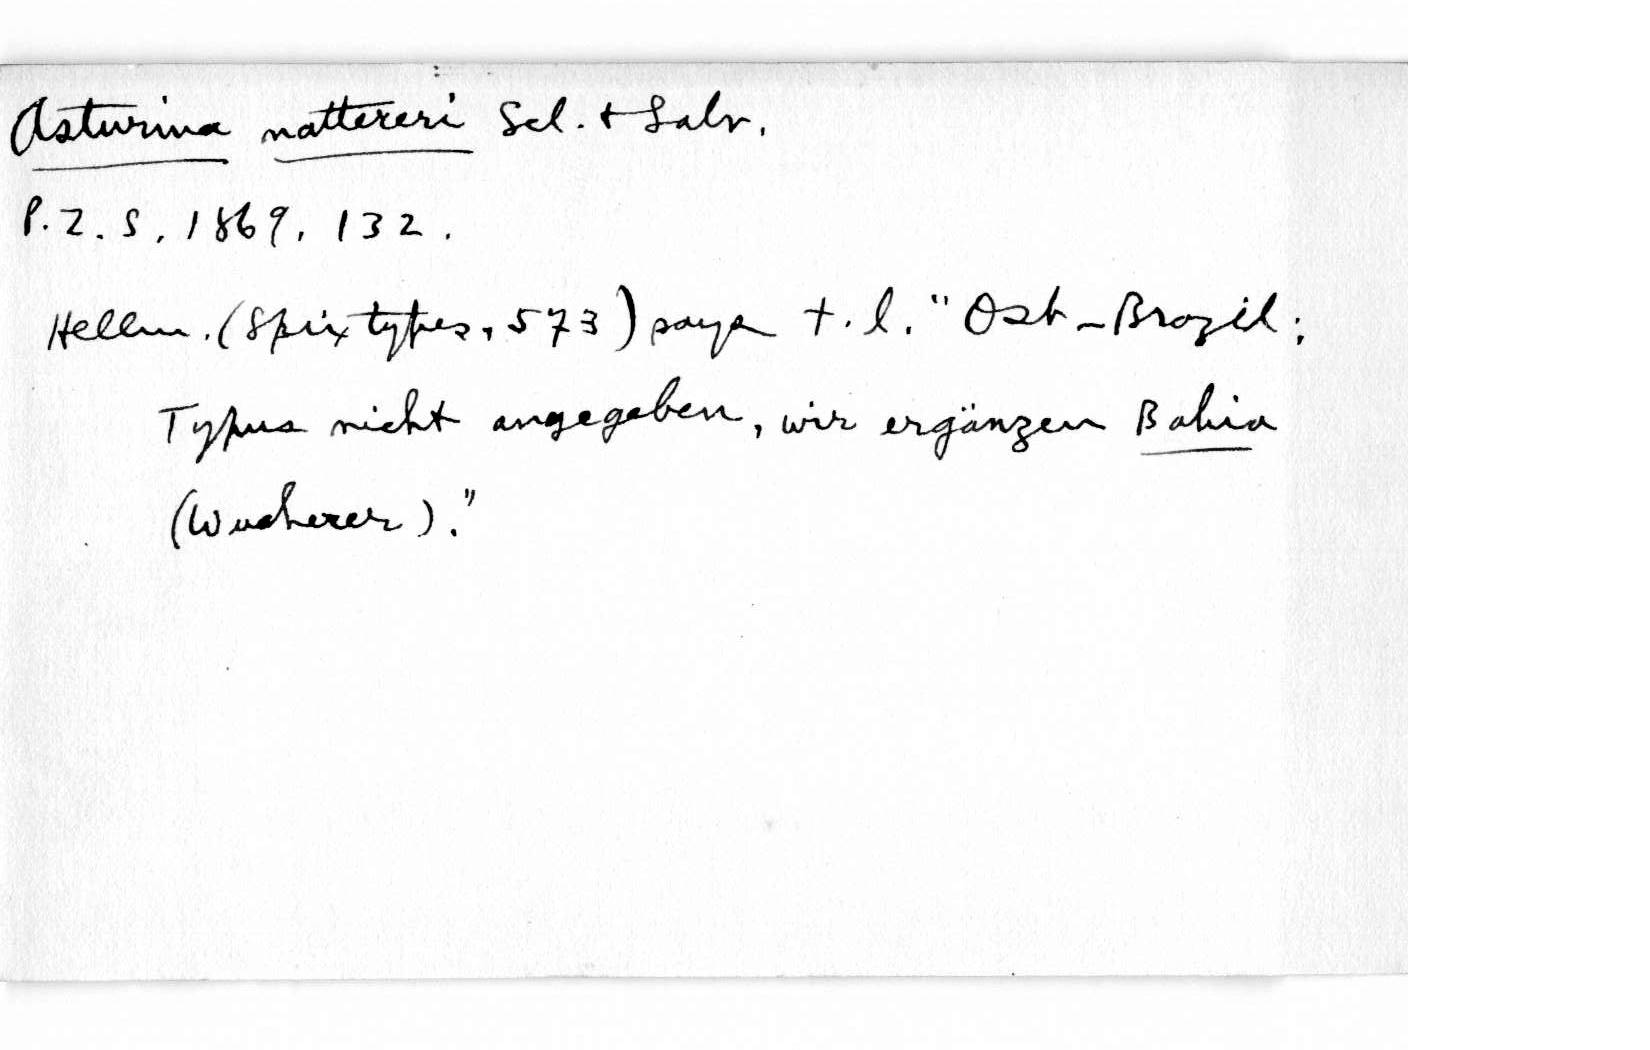 Asturina nattereri Scl. + Salv.
P.Z.S. 1869, 132.
Hellm. (Spix types, 573) says t.l. "Ost-Brazil;
Typus nicht angegeben, wir ergänzen Bahia
(Wucherer)."